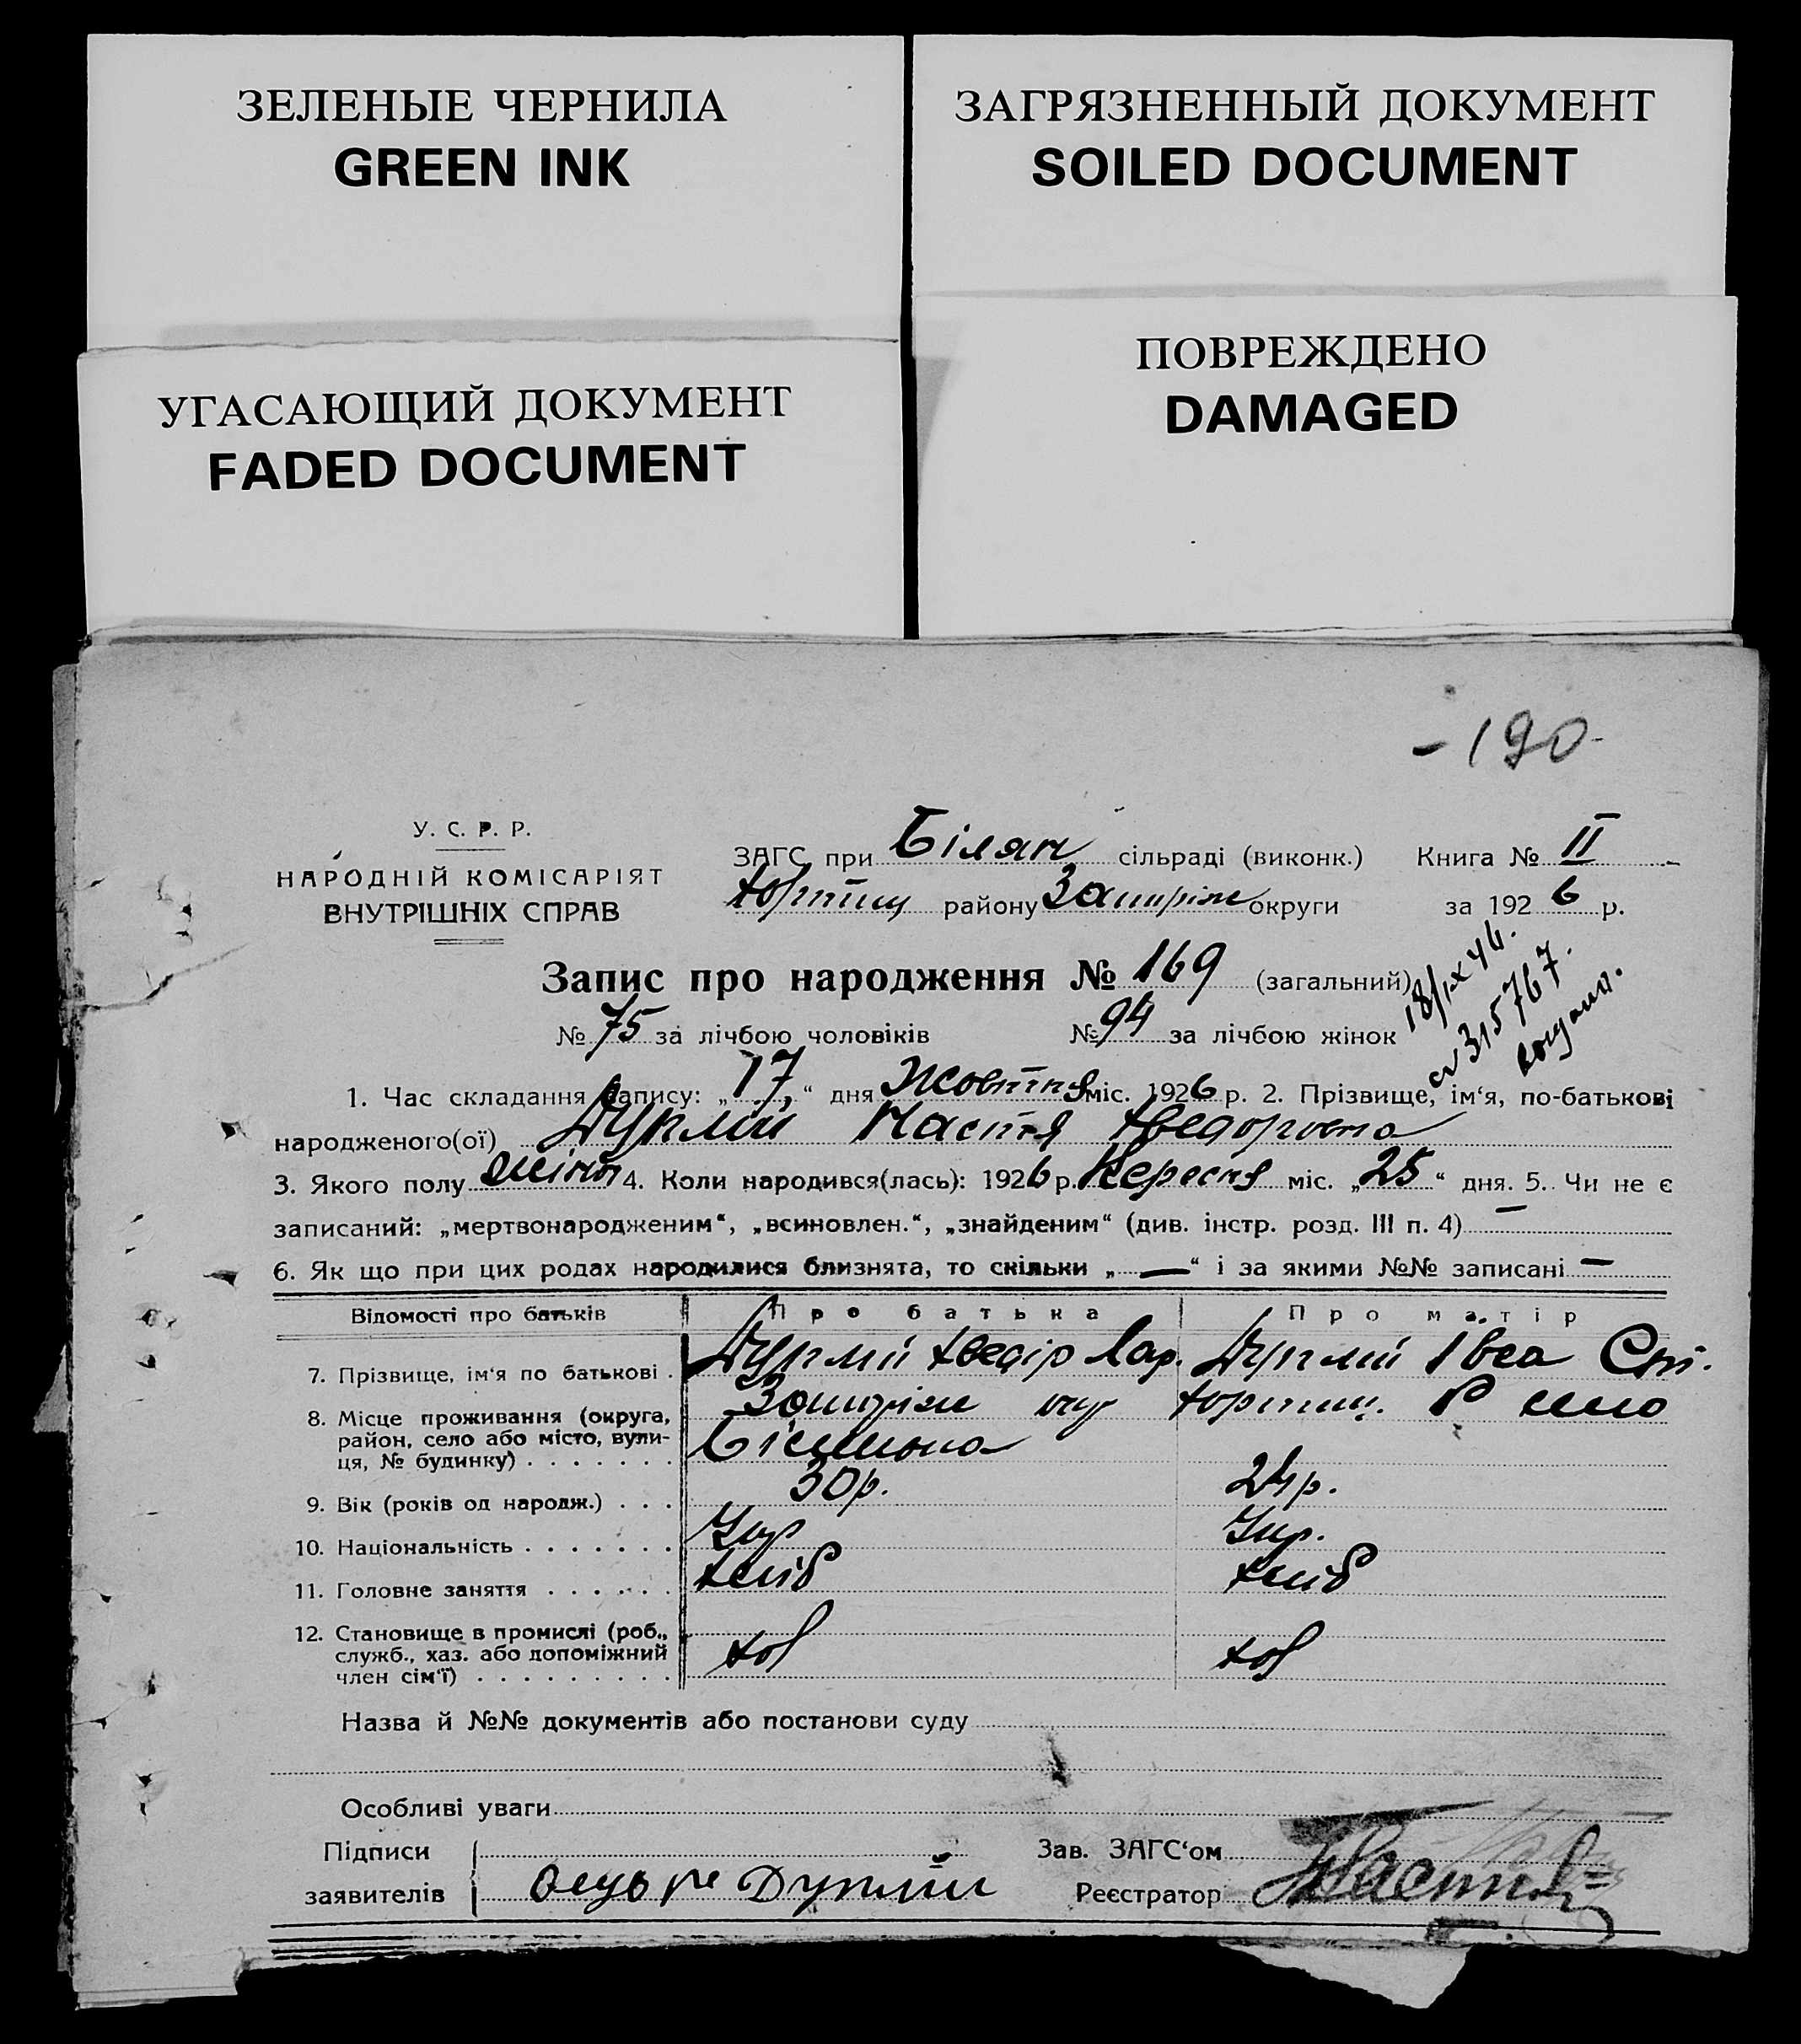 ЗЕЛЕНЫЕ ЧЕРНИЛА
GREEN INK
ЗАГРЯЗНЕННЫЙ ДОКУМЕНТ
SOILED DOCUMENT
УГАСАЮЩИЙ ДОКУМЕНТ
FADED DOCUMENT
ПОВРЕЖДЕНО
DAMAGED
- 190 -
У. С. Р. Р.
НАРОДНІЙ КОМІСАРІЯТ
ВНУТРІШНІХ СПРАВ
ЗАГС при Білян сільраді (виконк.) Книга № II
Хортиц району Запоріж округи за 1926 р.
Запис про народження № 169 (загальний)
№ 75 за лічбою чоловіків № 94 за лічбою жінок
18/IX 46.
315767.
1. Час складання запису: „17“ дня Жовтня міс. 1926 р. 2. Прізвище, ім‘я, по-батькові
народженого(ої) Дуплій Настя Хведоровна
3. Якого полу жіноч 4. Коли народився(лась): 1926 р. Вересня міс. „25“ дня. 5. Чи не є
записаний: „мертвонародженим“, „всиновлен.“, „знайденим“ (див. інстр. розд. III п. 4) —
6. Як що при цих родах народилися близнята, то скільки „—“ і за якими №№ записані —
Відомості про батьків Про батька Про матір
7. Прізвище, ім‘я по батькові . Дуплій Хведір Лар. Дуплій Івга
8. Місце проживання (округа, Запоріж окр Хортиц. Р село
район, село або місто, вули-
ця, № будинку) . . . . . . .
9. Вік (років од народж.) . . . 30 р. 24 р.
10. Національність . . . . . . . Укр Укр.
11. Головне заняття . . . . . . Хліб Хліб
12. Становище в промислі (роб.,
служб., хаз. або допоміжний
член сім‘ї) . . . . . . . . .
Назва й №№ документів або постанови суду
Особливі уваги
Підписи
заявителів Дуплій
Зав. ЗАГС‘ом
Реєстратор